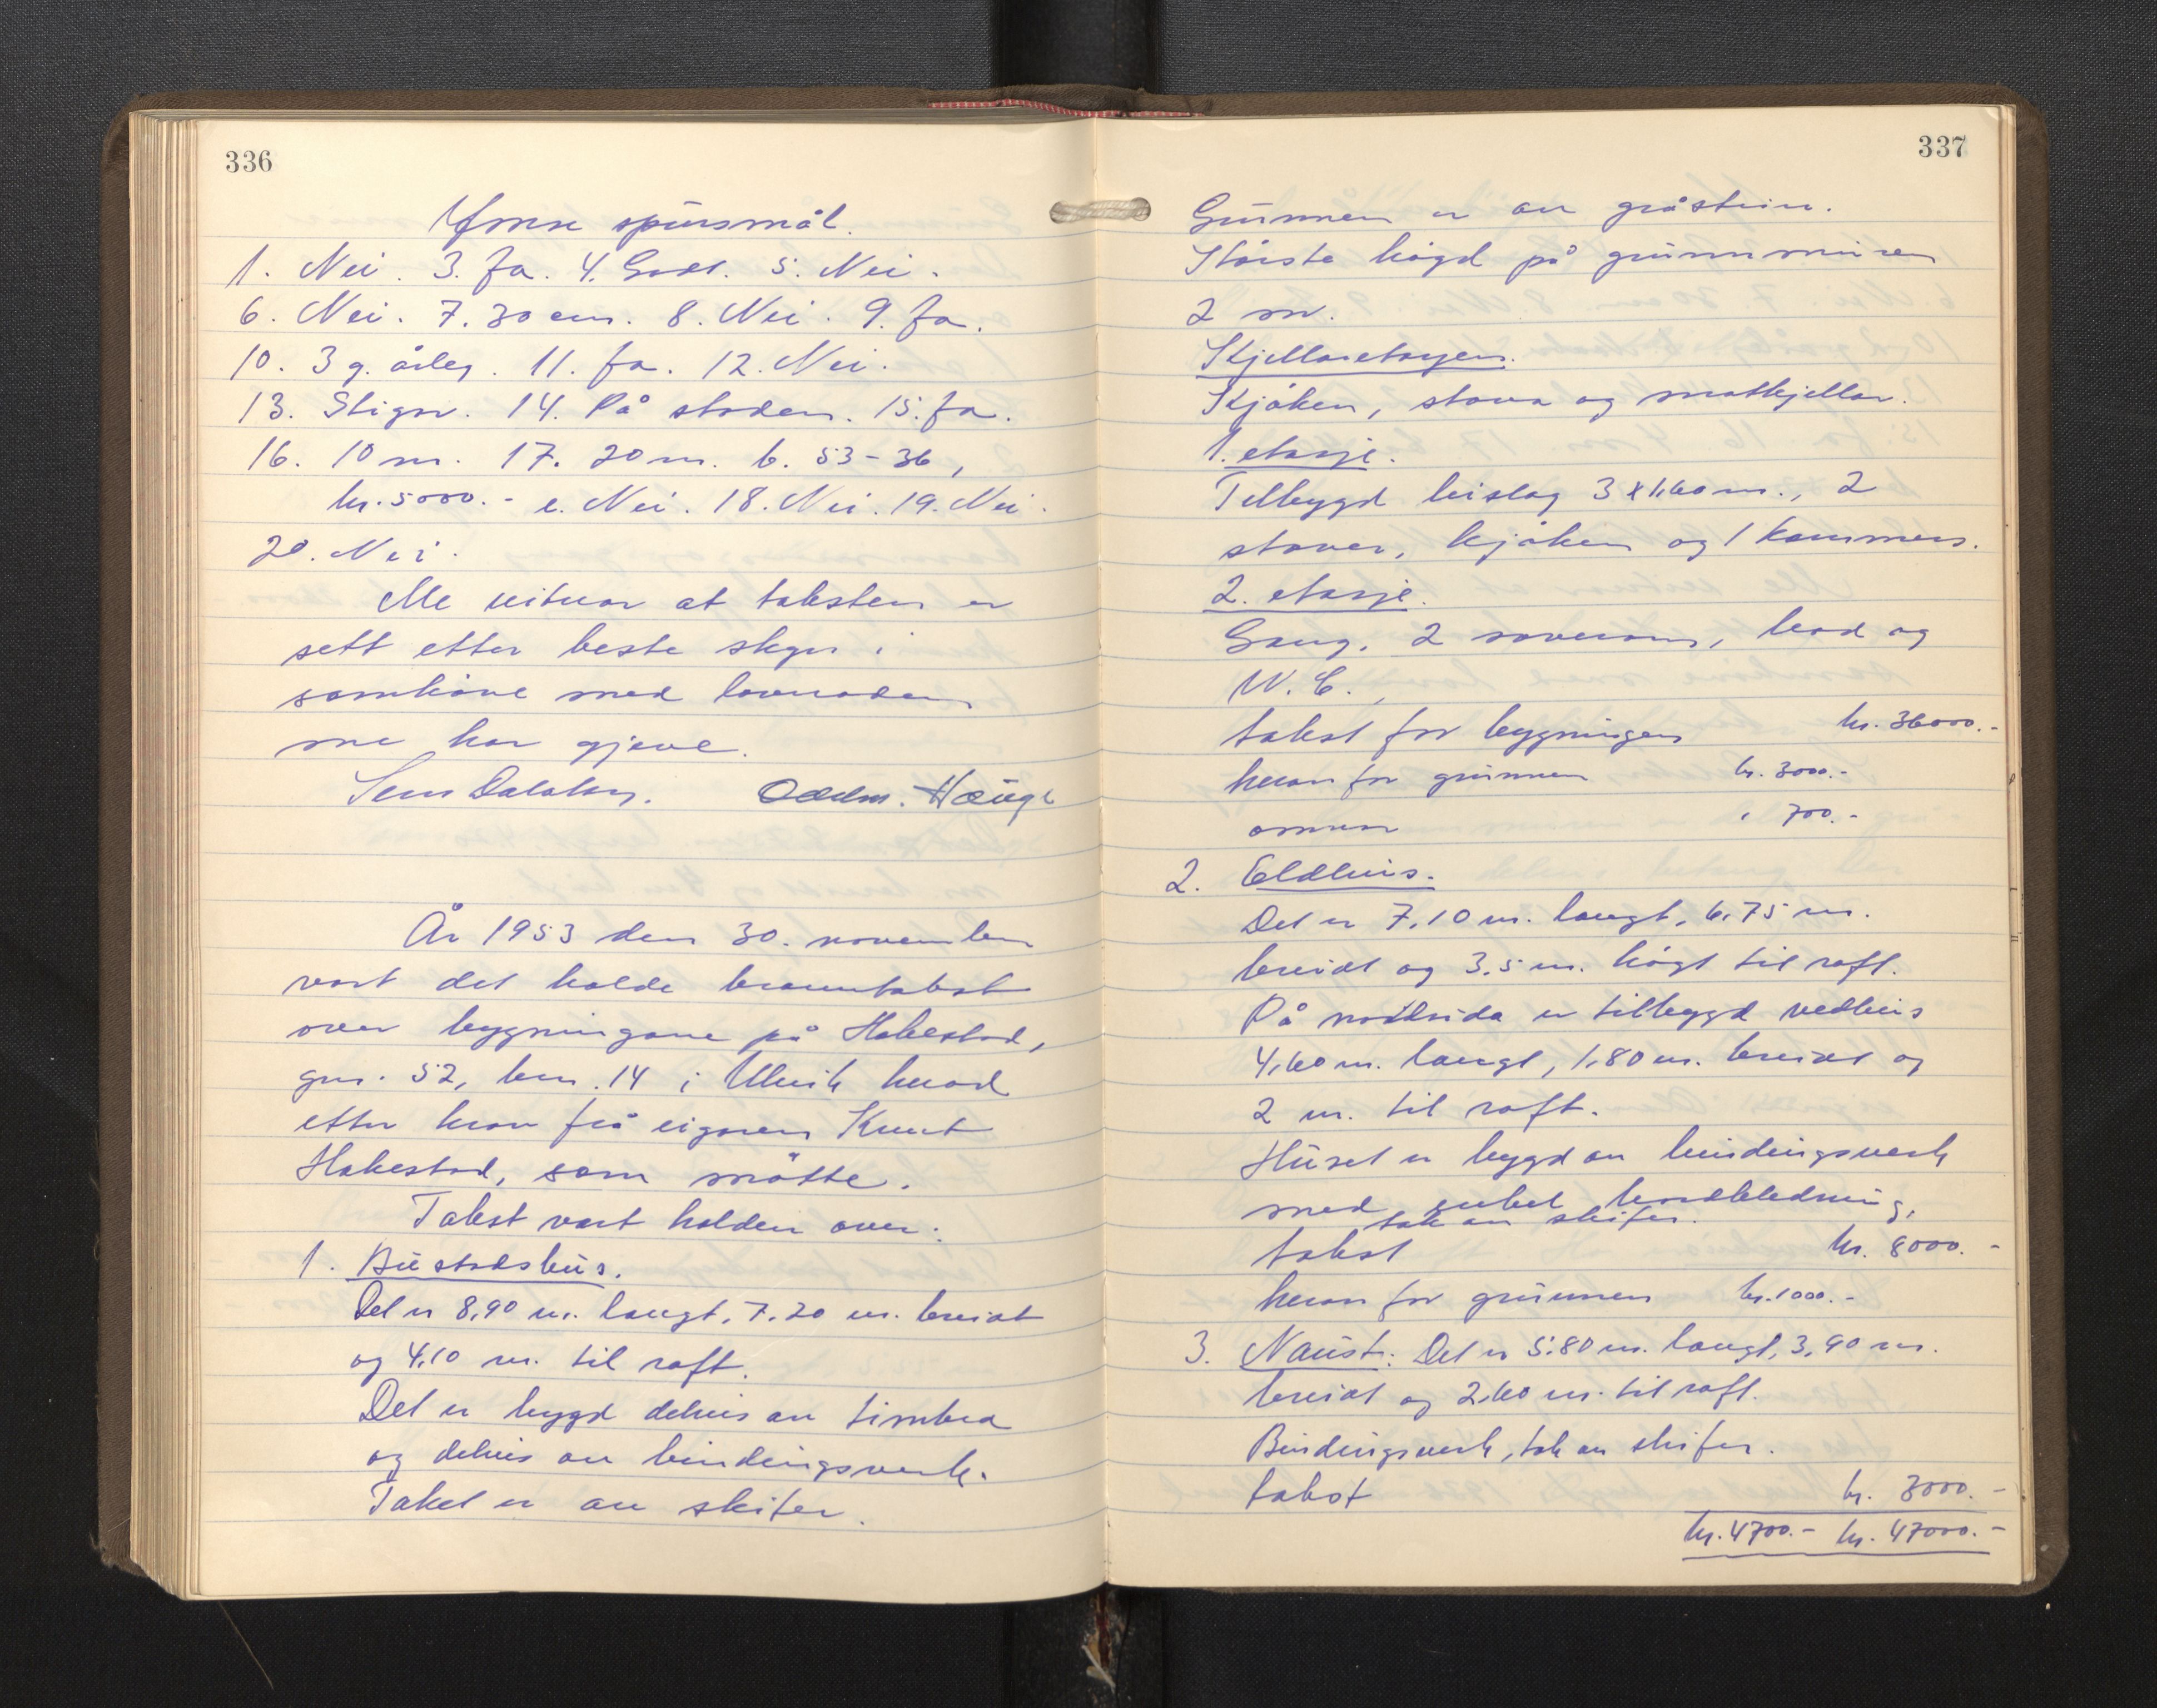 336
Ymse spursmål.
1. Nei. 3. Ja. 4. Godt. 5. Nei.
6. Nei. 7. 30 cm. 8. Nei. 9. Ja.
10. 3 g. årleg. 11. Ja. 12. Nei.
13. Stigar. 14. På staden. 15. Ja.
16. 10 m. 17. 20 m. b. 53-36,
kr. 5000.- e. Nei. 18. Nei. 19. Nei.
20. Nei.
Me vitnar at taksten er
sett etter beste skyn i
samhøve med lovnaden
me har gjeve.
Oddm. Hauge
År 1953 den 30. november
vart det halde branntakst
over bygningane på Hakestad,
gnr. 52, bnr. 14 i Ulvik herad
etter krav frå eigaren Knut
Hakestad, som møtte.
Takst vart halden over:
1. Bustadshus.
Det er 8,90 m. langt, 7.20 m. breidt
og 4,10 m. til raft.
Det er bygd delvis av timbra
og delvis av bindingsverk.
Taket er av skifer.
337
Grunnen er av gråstein.
Største høgd på grunnmuren
2 m.
Kjellaretasjen.
Kjøken, stova og matkjellar.
1. etasje.
Tilbygd bislag 3 x 1,60 m., 2
stover, kjøken og 1 kammers.
2. etasje.
Gang, 2 soverom, bad og
W.C.
takst for bygningen kr. 36000.-
herav for grunnen kr. 3000.-
omnen " 700.-
2. Eldhus.
Det er 7,10 m. langt, 6,75 m.
breidt og 3,5 m. høgt til raft.
På nordsida er tilbygd vedhus
4,60 m. langt, 1,80 m. breidt og
2 m. til raft.
Huset er bygd av bindingsverk
med enkel bordkledning,
tak av skifer.
takst kr. 8000.-
herav for grunnen kr. 1000.-
3. Naust. Det er 5,80 m. langt, 3,90 m.
breidt og 2,60 m. til raft.
Bindingsverk, tak av skifer.
takst kr. 3000.-
kr. 4700.- kr. 47000.-